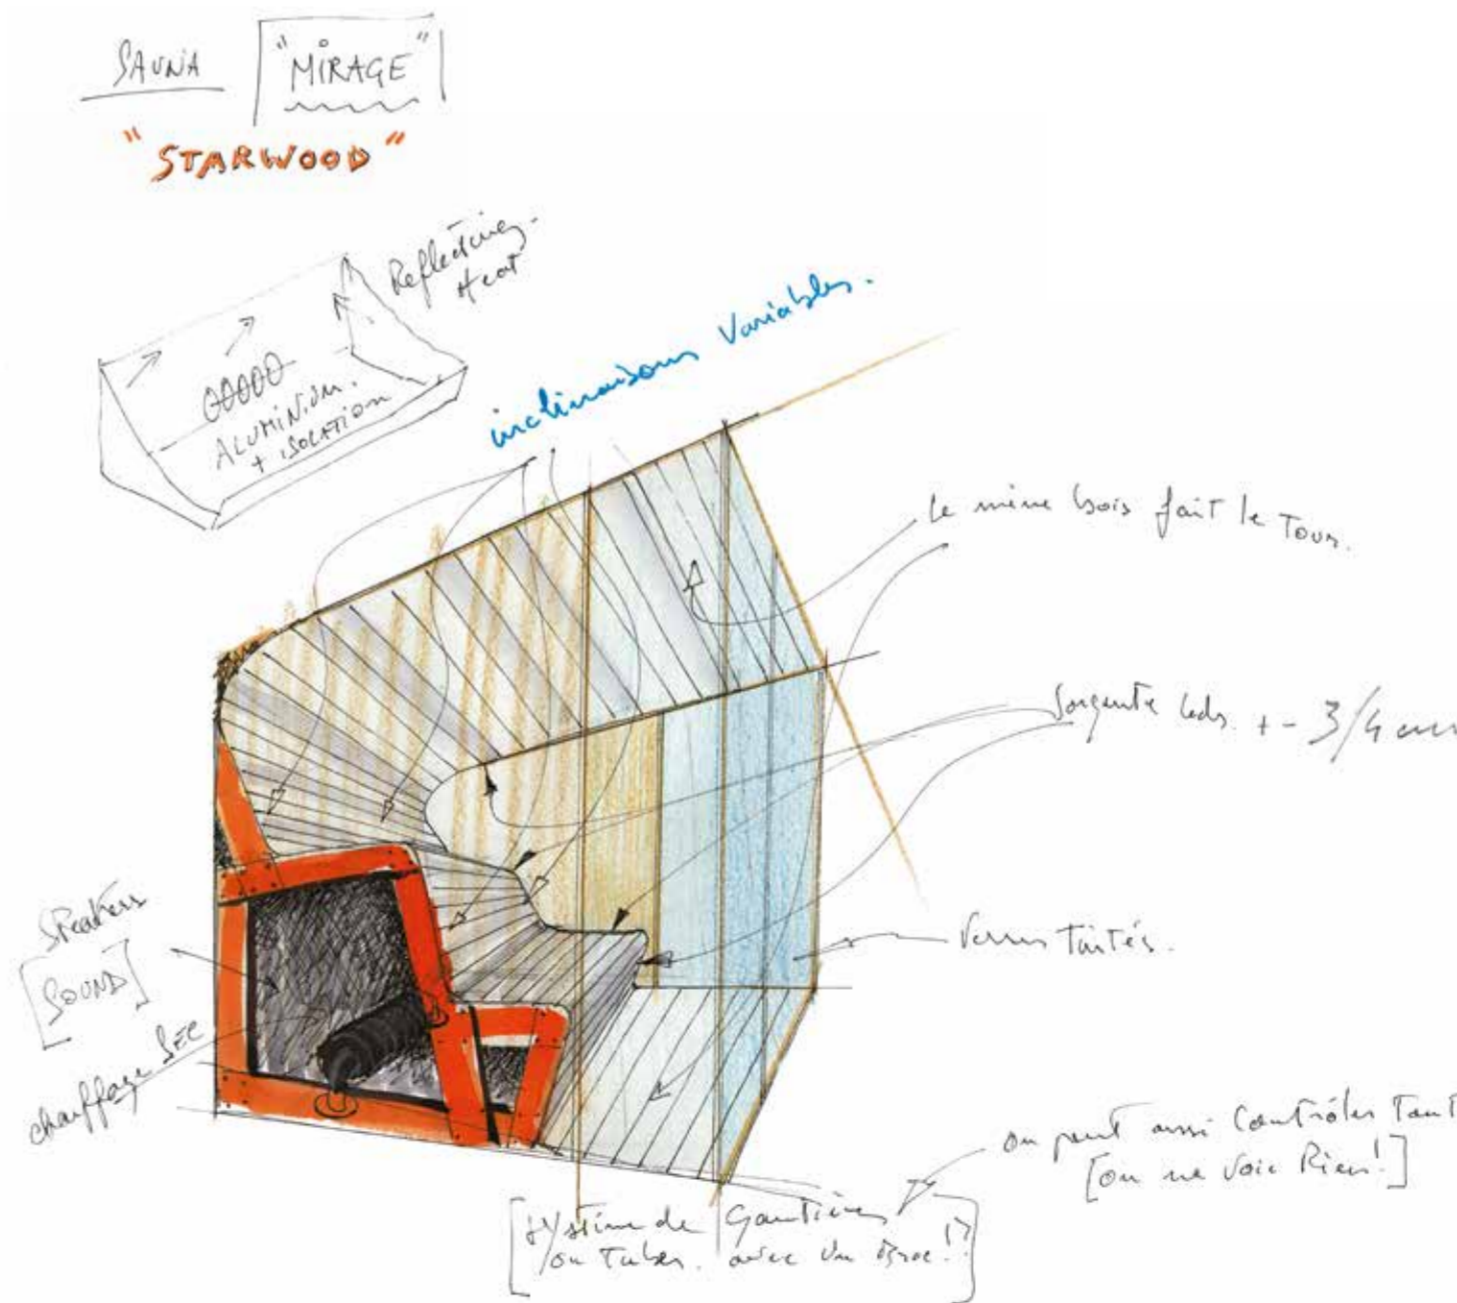 SAUNA
"MIRAGE"
"STARWOOD"
Reflecting
Heat
ALUMINIUM.
+ ISOLATION
inclinaisons Variables.
Le même bois fait le Tour.
Sorgente leds. + - 3/4 cm
Speakers
[SOUND]
chauffage SEC
Verres Tintés.
on peut aussi Contrôler Tout
[on ne voie Rien!]
[système de Goutières
ou Tubes. avec un !?]